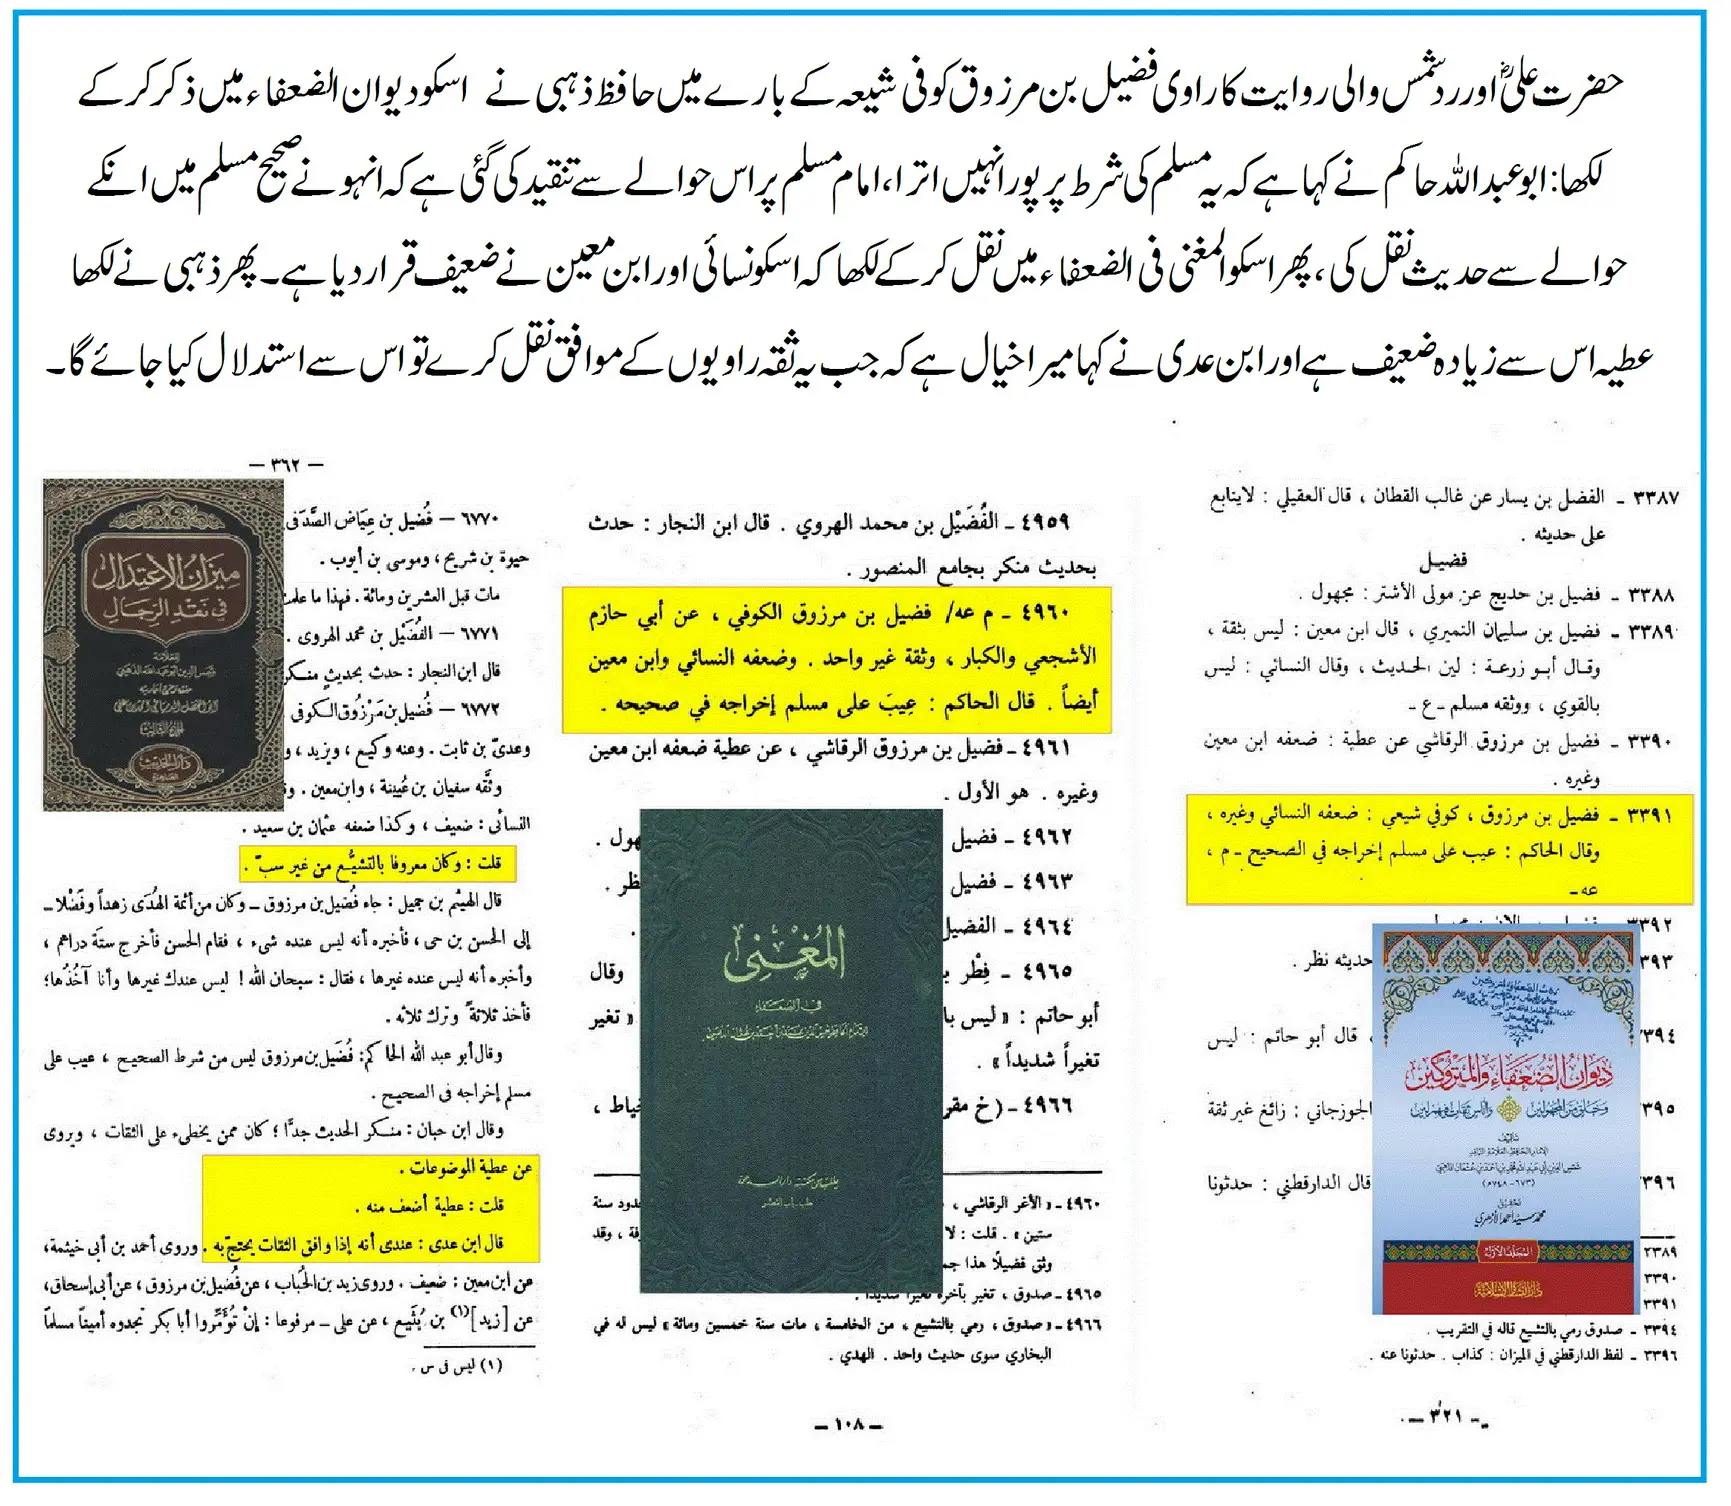 حضرت علیؓ اور ردشمس والی روایت کا راوی فضیل بن مرزوق کوفی شیعہ کے بارے میں حافظ ذہبی نے اسکو دیوان الضعفاء میں ذکر کرکے
لکھا: ابو عبد اللہ حاکم نے کہا ہے کہ یہ مسلم کی شرط پر پورا نہیں اترا، امام مسلم پر اس حوالے سے تنقید کی گئی ہے کہ انہونے صحیح مسلم میں انکے
حوالے سے حدیث نقل کی، پھر اسکو المغنی فی الضعفاء میں نقل کرکے لکھا کہ اسکو نسائی اور ابن معین نے ضعیف قرار دیا ہے۔ پھر ذہبی نے لکھا
عطیہ اس سے زیادہ ضعیف ہے اور ابن عدی نے کہا میرا خیال ہے کہ جب یہ ثقہ راویوں کے موافق نقل کرے تو اس سے استدلال کیا جائے گا۔
٣٣٨٧ ـ الفضل بن يسار عن غالب القطان ، قال العقيلي : لايتابع
على حديثه .
فضيل
٣٣٨٨ ـ فضيل بن حديج عن مولى الأشتر : مجهول .
٣٣٨٩ ـ فضيل بن سليمان النميري ، قال ابن معين : ليس بثقة ،
وقال أبو زرعة : لين الحديث ، وقال النسائي : ليس
بالقوي ، ووثقه مسلم ـ ع ـ
٣٣٩٠ ـ فضيل بن مرزوق الرقاشي عن عطية : ضعفه ابن معين
وغيره .
٣٣٩١ ـ فضيل بن مرزوق ، كوفي شيعي : ضعفه النسائي وغيره ،
وقال الحاكم : عيب على مسلم إخراجه في الصحيح ـ م ،
عه ـ
٣٣٩٢
٣٩٣ حديثه نظر .
٣٩٤ ، قال أبو حاتم : ليس
٣٩٥ الجوزجاني : زائغ غير ثقة
٣٩٦ قال الدارقطني : حدثونا
ديوان الضعفاء والمتروكين
وخلق من المجهولين وثقات فيهم لين
تأليف
شمس الدين أبي عبد الله محمد بن أحمد بن عثمان الذهبي
(٦٧٣ - ٧٤٨هـ)
تحقيق
المجلد الأول
٢٣٨٩
٣٣٩٠
٣٣٩١
٣٣٩٤ ـ صدوق رمي بالتشيع قاله في التقريب .
٣٣٩٦ ـ لفظ الدارقطني في الميزان : كذاب . حدثونا عنه .
ـ ٣٢١ ـ
٤٩٥٩ ـ الفُضَيْل بن محمد الهروي . قال ابن النجار : حدث
بحديث منكر بجامع المنصور .
٤٩٦٠ ـ م عه/ فضيل بن مرزوق الكوفي ، عن أبي حازم
الأشجعي والكبار ، وثقة غير واحد . وضعفه النسائي وابن معين
أيضاً . قال الحاكم : عِيبَ على مسلم إخراجه في صحيحه .
٤٩٦١ ـ فضيل بن مرزوق الرقاشي ، عن عطية ضعفه ابن معين
وغيره . هو الأول .
٤٩٦٢ ـ فضيل
٤٩٦٣ ـ فضيل
٤٩٦٤ ـ الفضيل
٤٩٦٥ ـ فِطْر وقال
أبو حاتم : « ليس « تغير
تغيراً شديداً » .
٤٩٦٦ ـ (خ
المغني
في الضعفاء
٤٩٦٠ ـ « الأغر الرقاشي ، حدود سنة
ستين » . قلت : وقد
وثق فضيلًا هذا
٤٩٦٥ ـ صدوق ، تغير بآخره تغيراً شديداً .
٤٩٦٦ ـ « صدوق ، رمي بالتشيع ، من الخامسة ، مات سنة خمسين ومائة » ليس له في
البخاري سوى حديث واحد . الهدي .
ـ ١٠٨ ـ
— ٣٦٢ —
٦٧٧٠ — فُضيل بن عِيَاض الصَّدَفى
حيوة بن شريح ، وموسى بن أيوب .
مات قبل العشرين ومائة . فهذا ما علمت
٦٧٧١ — الفُضَيْل بن محمد الهروى .
قال ابن النجار : حدث بحديثٍ منكر
٦٧٧٢ — فُضيل بن مَرْزُوق الكوفى
وعدىّ بن ثابت . وعنه وكيع ، ويزيد ،
وثَّقه سفيان بن عُيينة ، وابن معين .
النسائى : ضعيف ، وكذا ضعفه عثمان بن سعيد .
قلت : وكان معروفا بالتشيُّع من غير سبّ .
قال الهيثم بن جميل : جاء فُضيل بن مرزوق ـ وكان من أئمة الهُدَى زهداً وفَضْلا ـ
إلى الحسن بن حى ، فأخبره أنه ليس عنده شىء ، فقام الحسن فأخرج ستة دراهم ،
وأخبره أنه ليس عنده غيرها ، فقال : سبحان الله ! ليس عندك غيرها وأنا آخُذُها؛
فأخذ ثلاثةً وترك ثلاثه .
وقال أبو عبد الله الحاكم: فُضَيل بن مرزوق ليس من شرط الصحيح ، عيب على
مسلم إخراجه فى الصحيح .
وقال ابن حبان : منكر الحديث جدًّا ؛ كان ممن يخطىء على الثقات ، ويروى
عن عطية الموضوعات .
قلت : عطية أضعف منه .
قال ابن عدى : عندى أنه إذا وافق الثقات يحتجّ به . وروى أحمد بن أبى خيثمة،
عن ابن معين : ضعيف . وروى زيد بن الحُبَاب ، عن فُضيل بن مرزوق، عن أبى إسحاق،
عن [ زيد ](١) بن يُثَيع ، عن على ـ مرفوعا : إنْ تُؤَمِّروا أبا بكر تجدوه أمينًا مسلمًا
(١) ليس فى س .
ميزان الاعتدال
في نقد الرجال
دار الحديث
القاهرة